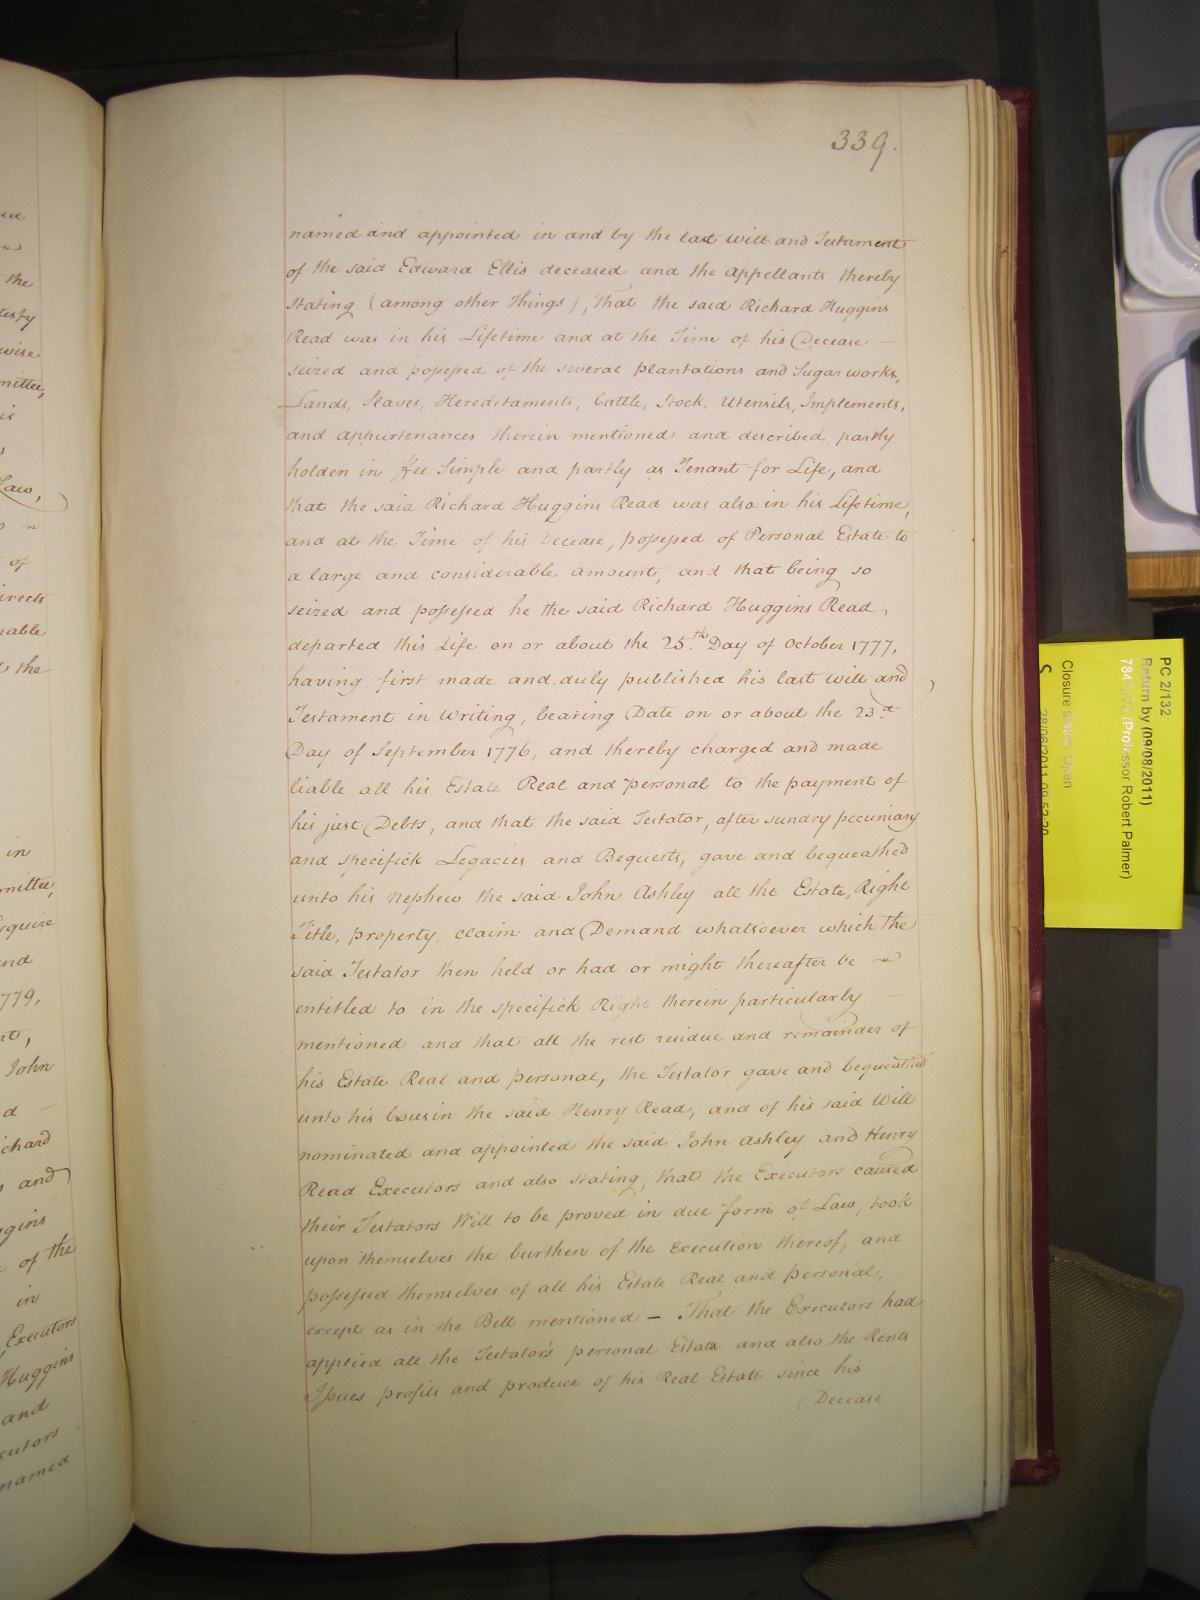 339.
named and appointed in and by the last Will and Testament
of the said Edward Ellis deceased and the Appellants thereby
stating (among other things), That the said Richard Huggins
Read was in his Lifetime and at the Time of his Decease —
seized and possessed of the several plantations and Sugar works,
Lands, Slaves, Hereditaments, Cattle, Stock, Utensils, Implements,
and appurtenances therein mentioned and described partly
holden in Fee Simple and partly as Tenant for Life, and
that the said Richard Huggins Read was also in his Lifetime,
and at the Time of his Decease, possessed of Personal Estate to
a large and considerable amount, and that being so
seized and possessed he the said Richard Huggins Read,
departed this Life on or about the 25.th Day of October 1777,
having first made and duly published his last will and
Testament in Writing, bearing Date on or about the 23.d
Day of September 1776, and thereby charged and made
liable all his Estate Real and personal to the payment of
his just Debts, and that the said Testator, after sundry pecuniary
and specifick Legacies and Bequests, gave and bequeathed
unto his nephew the said John Ashley all the Estate, Right
Title, property, claim and Demand whatsoever which the
said Testator then held or had or might thereafter be
entitled to in the specifick Right therein particularly
mentioned and that all the rest residue and remainder of
his Estate Real and personal, the Testator gave and bequeathed
unto his Cousin the said Henry Read, and of his said Will
nominated and appointed the said John Ashley and Henry
Read Executors and also stating, that the Executors caused
their Testators Will to be proved in due form of Law, took
upon themselves the burthen of the Execution thereof, and
possessed themselves of all his Estate Real and personal,
except as in the Bill mentioned — That the Executors had
applied all the Testator's personal Estate and also the Rents
Issues profits and produce of his Real Estate since his
Decease
the
wise
mittee,
is
Law,
of
irects
rable
the
in
mittee,
squire
and
779,
John
d
ichard
and
ggins
of the
in
Executors
Huggins
and
cutors
named
PC 2/132
Return by (09/08/2011)
(Professor Robert Palmer)
Closure status: Open
S